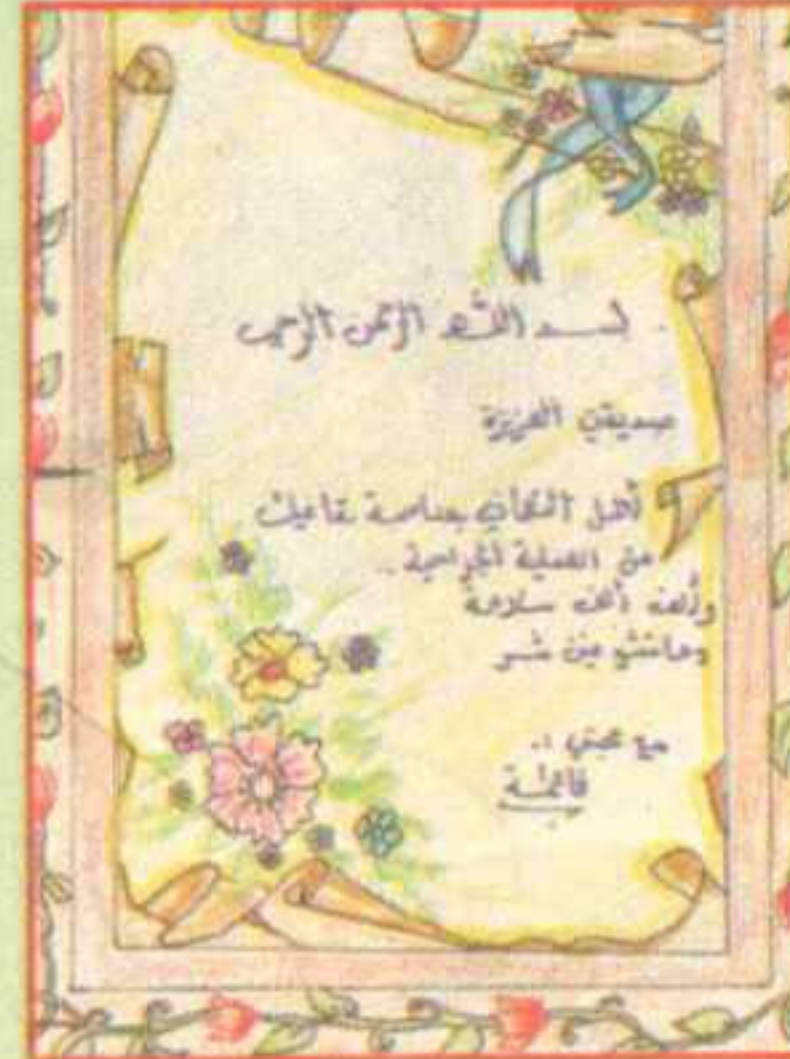 بسم الله الرحمن الرحيم
صديقتي العزيزة
أهل التهاني بمناسبة تماثلك
من العملية الجراحية ..
وألف ألف سلامة
وماتشوفين شر
مع محبتي ..
فاطمة